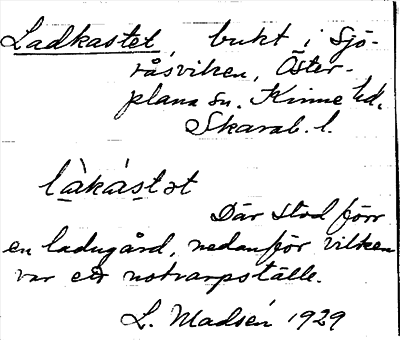 Ladkastet, bukt i Sjö-
råsviken, Öster-
plana sn. Kinne hd.
Skarab. l.
là̱ká̱stət
Där stod förr
en ladugård, nedanför vilken
var ett notvarpställe.
L. Madsén 1929